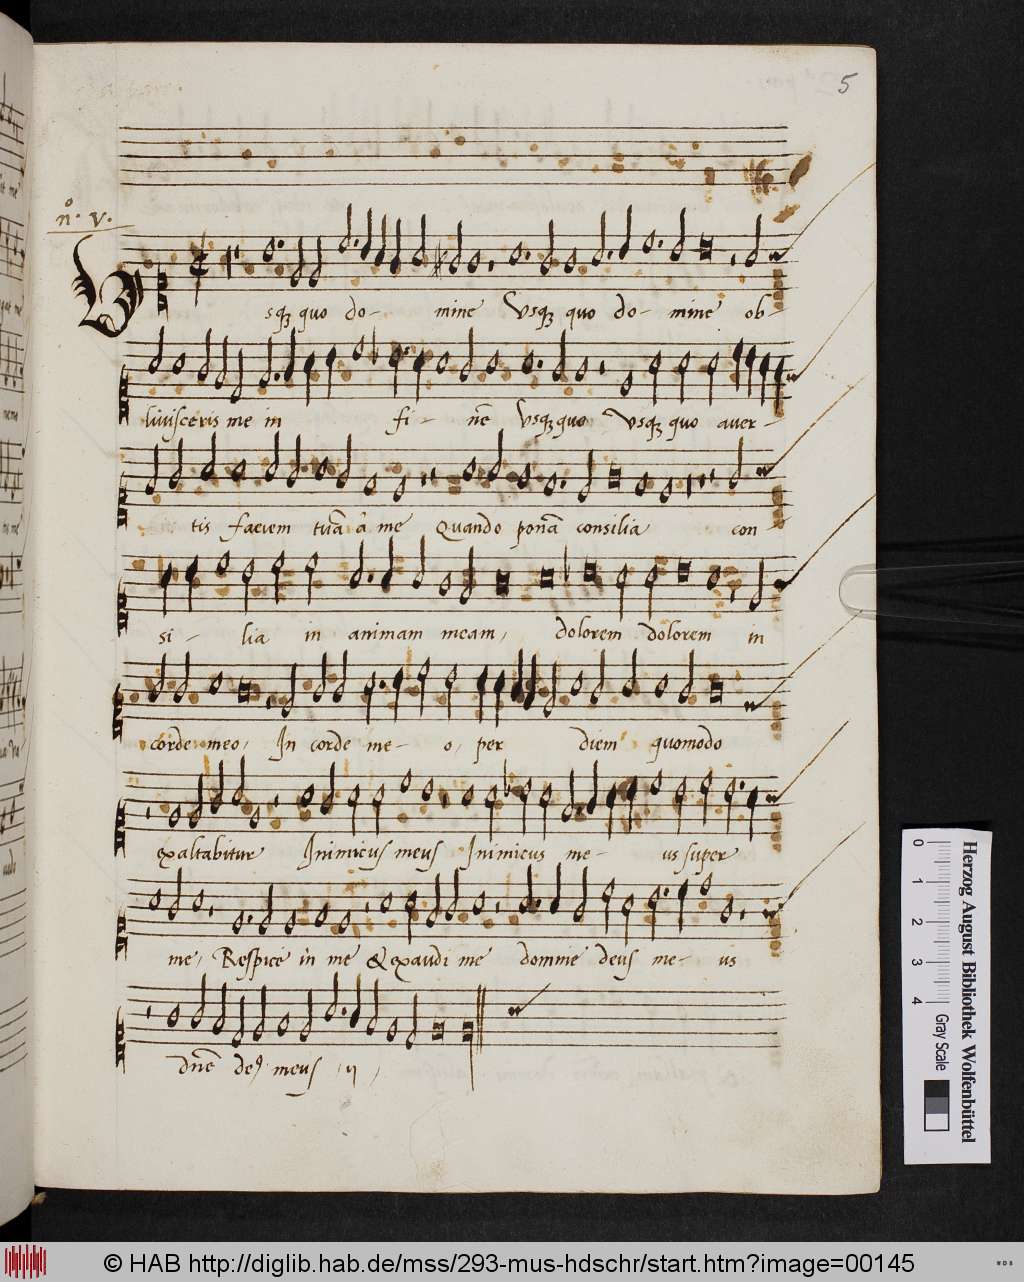 5
nº. v.
Vsqȝ quo do- mine Vsqȝ quo do- mine ob-
liuisceris me in fi- nē vsqȝ quo vsqȝ quo auer-
tis faciem tuā à me Quando ponā consilia con
si- lia in animam meam, dolorem dolorem in
corde meo, In corde me- o, per diem quomodo
exaltabitur Inimicus meus Inimicus me- us super
me, Respice in me & exaudi me domine deus me- us
dnē de9 meus , ij ,
0 1 2 3 4
Herzog August Bibliothek Wolfenbüttel
Gray Scale
© HAB http://diglib.hab.de/mss/293-mus-hdschr/start.htm?image=00145